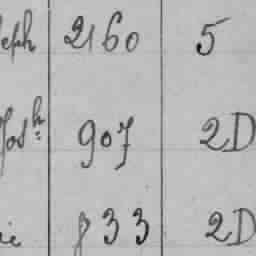 eph 2160 5
Josh 907 2D
ie 833 2D